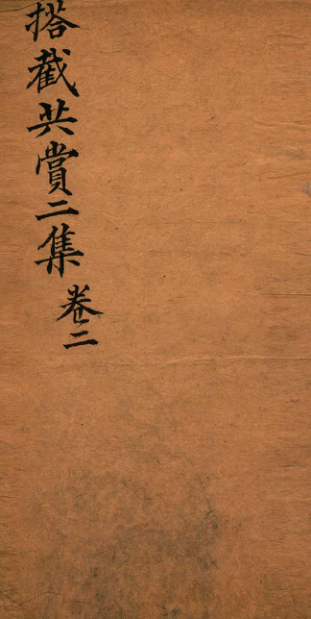 搭截共賞二集 卷二